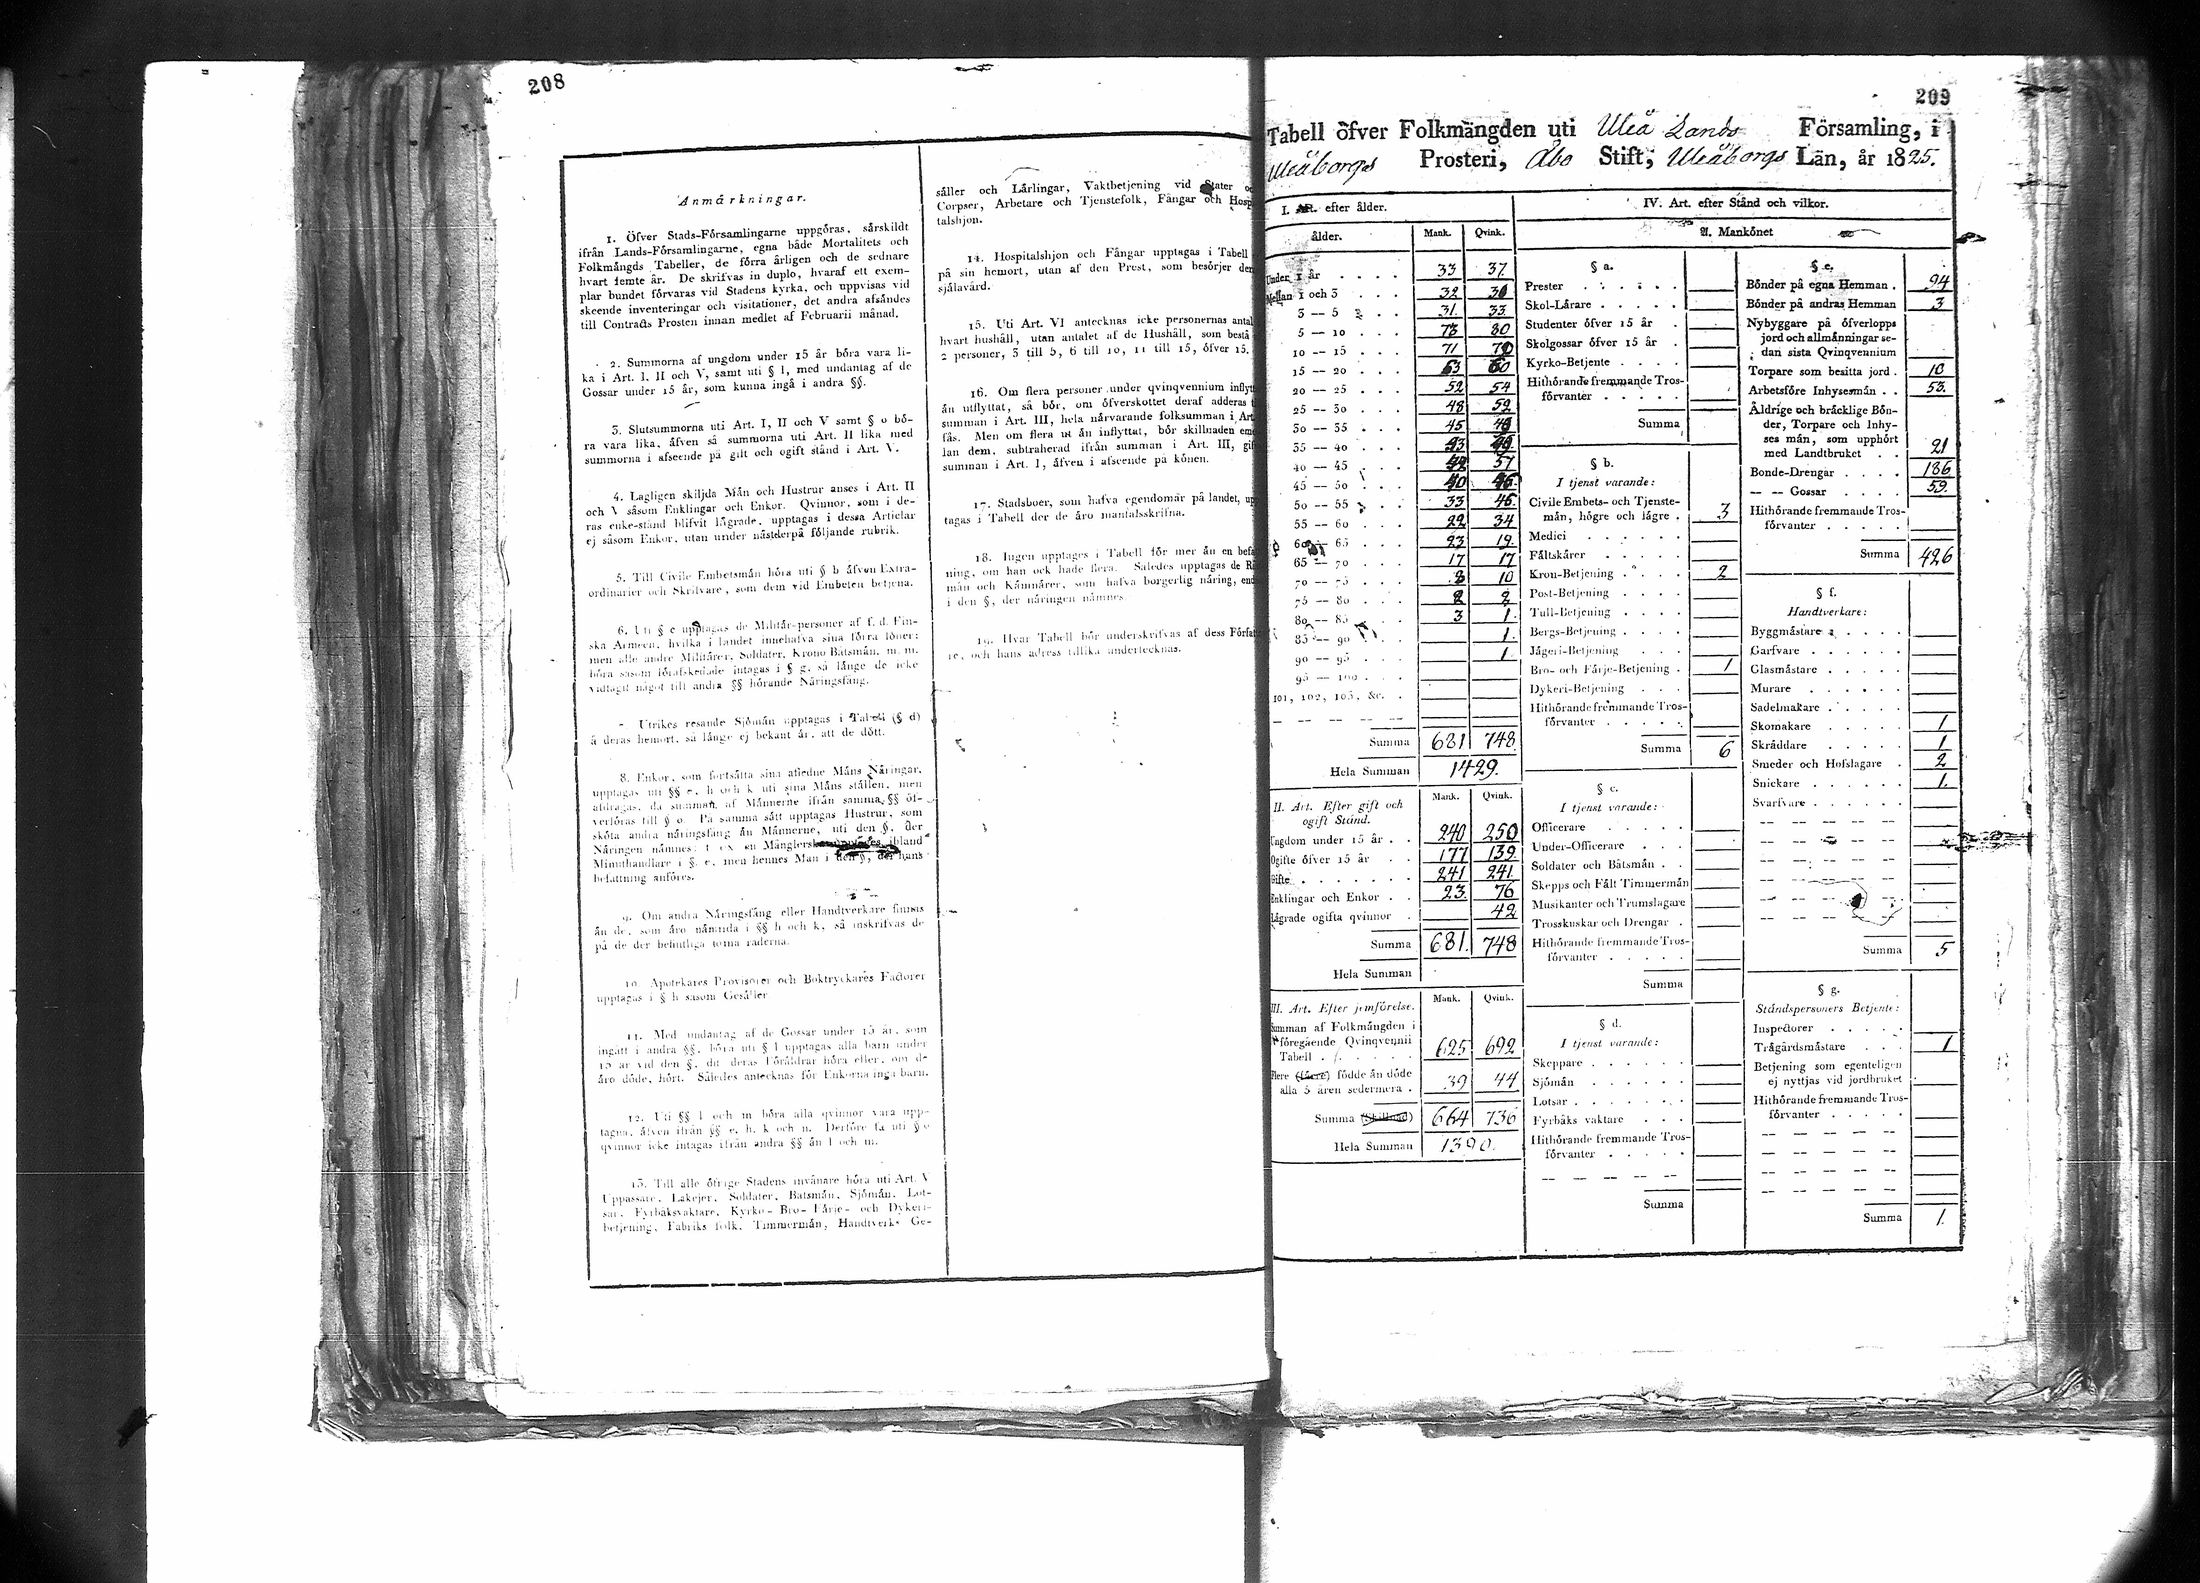 208
Anmårkningar.
1. Öfver Stads-Församlingarne uppgöras, sårskildt
ifrån Lands-Församlingarne, egna både Mortalitets och
Folkmångds Tabeller, de förra årligen och de sednare
hvart femte år. De skrifvas in duplo, hvaraf ett exem-
plar bundet förvaras vid Stadens kyrka, och uppvisas vid
skeende inventeringar och visitationer, det andra afsåndes
till Contracts Prosten innan medlet af Februarii månad.
2. Summorna af ungdom under 15 år böra vara li-
ka i Art. I, II och V, samt uti § l, med undantag af de
Gossar under 15 år, som kunna ingå i andra §§.
3. Slutsummorna uti Art. I, II och V samt § o bö-
ra vara lika, åfven så summorna uti Art. II lika med
summorna i afseende på gift och ogift stånd i Art. V.
4. Lagligen skiljda Mån och Hustrur anses i Art. II
och V såsom Enklingar och Enkor. Qvinnor, som i de-
ras enke-stånd blifvit lågrade, upptagas i dessa Articlar
ej såsom Enkor, utan under nåstderpå följande rubrik.
5. Till Civile Embetsmån höra uti § b åfven Extra-
ordinarier och Skrifvare, som dem vid Embeten betjena.
6. Uti § c upptagas de Militår-personer af f. d. Fin-
ska Armeen, hvilka i landet innehafva sina förra löner;
men alle andre Militårer, Soldater, Krono Båtsmån, m. m.
böra såsom förafskedade intagas i § g, så långe de icke
vidtagit något till andra §§ hörande Nåringsfång.
7. Utrikes resande Sjömån upptagas i Tabell (§ d)
å deras hemort, så långe ej bekant år, att de dött.
8. Enkor, som fortsåtta sina aflidne Måns Nåringar,
upptagas uti §§ e, h och k uti sina Måns stållen, men
afdragas, då summan af Månnerne ifrån samma §§ öf-
verföras till § o. På samma sått upptagas Hustrur, som
sköta andra nåringsfång ån Månnerne, uti den §, der
Nåringen nåmnes; t. ex. en Månglerska upptages ibland
Minuthandlare i §. e, men hennes Man i den §, der hans
befattning anföres.
9. Om andra Nåringsfång eller Handtverkare finnas
ån de, som åro nåmnda i §§ h och k, så inskrifvas de
på de der befintliga toma raderna.
10. Apotekares Provisorer och Boktryckares Factorer
upptagas i § h såsom Gesåller.
11. Med undantag af de Gossar under 15 år, som
ingått i andra §§, böra uti § l upptagas alla barn under
15 år vid den §, dit deras Föråldrar höra eller, om de
åro döde, hört. Således antecknas för Enkorna inga barn.
12. Uti §§ l och m böra alla qvinnor vara upp-
tagna, åfven ifrån §§ e, h, k och n. Derföre få uti § o
qvinnor icke intagas ifrån andra §§ ån l och m.
13. Till alle öfrige Stadens invånare höra uti Art. V
Uppassare, Lakejer, Soldater, Båtsmån, Sjömån, Lot-
sar, Fyrbåksvaktare, Kyrko- Bro- Fårje- och Dykeri-
betjening, Fabriks folk, Timmermån, Handtverks Ge-
såller och Lårlingar, Vaktbetjening vid Stater
Corpser, Arbetare och Tjenstefolk, Fångar och Hosp
talshjon.
14. Hospitalshjon och Fångar upptagas i Tabell
på sin hemort, utan af den Prest, som besörjer den
sjålavård.
15. Uti Art. VI antecknas icke personernas antal
hvart hushåll, utan antalet af de Hushåll, som bestå
2 personer, 3 till 5, 6 till 10, 11 till 15, öfver 15.
16. Om flera personer under qvinqvennium inflytt
ån utflyttat, så bör, om öfverskottet deraf adderas t
summan i Art. III, hela nårvarande folksumman i Art
fås. Men om flera ut ån inflyttat, bör skillnaden eme
lan dem, subtraherad ifrån summan i Art. III, gif
summan i Art. I, åfven i afseende på könen.
17. Stadsboer, som hafva egendomar på landet, upp
tagas i Tabell der de åro mantalsskrifna.
18. Ingen upptages i Tabell för mer ån en befa
ning, om han ock hade flera. Således upptagas de Rå
mån och Kåmnårer, som hafva borgerlig nåring, end
i den §, der nåringen nåmnes.
19. Hvar Tabell bör underskrifvas af dess Författ
re, och hans adress tillika undertecknas.
209
Tabell öfver Folkmängden uti Uleå Lands Församling, i
Uleåborgs Prosteri, Åbo Stift, Uleåborgs Län, år 1825.
I. Art. efter ålder.
ålder. Mank. Qvink.
Under 1 år 33 37
Mellan 1 och 3 32 30
3 — 5 31 33
5 — 10 73 80
10 — 15 71 70
15 — 20 63 60
20 — 25 52 54
25 — 30 48 52
30 — 35 45 48
35 — 40
40 — 45 57
45 — 50 40 46
50 — 55 33 46
55 — 60 22 34
60 — 65 23 19
65 — 70 17 17
70 — 75 8 10
75 — 80 2 2
80 — 85 3 1
85 — 90 1
90 — 95 1
95 — 100
101, 102, 103, &c.
Summa 681 748
Hela Summan 1429.
II. Art. Efter gift och
ogift Stånd. Mank. Qvink.
Ungdom under 15 år 240 250
Ogifte öfver 15 år 177 139
Gifte 241 241
Enklingar och Enkor 23 76
Lågrade ogifta qvinnor 42
Summa 681. 748
Hela Summan
III. Art. Efter jemförelse. Mank. Qvink.
Summan af Folkmångden i
föregående Qvinqvennii
Tabell 625 692
Flere (fårre) födde ån döde
alla 5 åren sedermera 39 44
Summa (Skillnad) 664 736
Hela Summan 1390.
IV. Art. efter Stånd och vilkor.
A. Mankönet
§ a.
Prester
Skol-Lårare
Studenter öfver 15 år
Skolgossar öfver 15 år
Kyrko-Betjente
Hithörande fremmande Tros-
förvanter
Summa
§ b.
I tjenst varande:
Civile Embets- och Tjenste-
mån, högre och lågre 3
Medici
Fåltskårer
Kron-Betjening 2
Post-Betjening
Tull-Betjening
Bergs-Betjening
Jågeri-Betjening
Bro- och Fårje-Betjening 1
Dykeri-Betjening
Hithörande fremmande Tros-
förvanter
Summa 6
§ c.
I tjenst varande:
Officerare
Under-Officerare
Soldater och Båtsmån
Skepps och Fålt Timmermån
Musikanter och Trumslagare
Trosskuskar och Drengar
Hithörande fremmande Tros-
förvanter
Summa
§ d.
I tjenst varande:
Skeppare
Sjömån
Lotsar
Fyrbåks vaktare
Hithörande fremmande Tros-
förvanter
Summa
§ e.
Bönder på egna Hemman 94
Bönder på andras Hemman 3
Nybyggare på öfverlopps
jord och allmånningar se-
dan sista Qvinqvennium
Torpare som besitta jord 10
Arbetsföre Inhysesmån 53.
Åldrige och bråcklige Bön-
der, Torpare och Inhy-
ses mån, som upphört
med Landtbruket 21
Bonde-Drengar 186
— — Gossar 59.
Hithörande fremmande Tros-
förvanter
Summa 426
§ f.
Handtverkare:
Byggmåstare
Garfvare
Glasmåstare
Murare
Sadelmakare
Skomakare 1
Skråddare 1
Smeder och Hofslagare 2
Snickare 1.
Svarfvare
Summa 5
§ g.
Ståndspersoners Betjente:
Inspectorer
Trågårdsmåstare 1
Betjening som egenteligen
ej nyttjas vid jordbruket
Hithörande fremmande Tros-
förvanter
Summa 1.